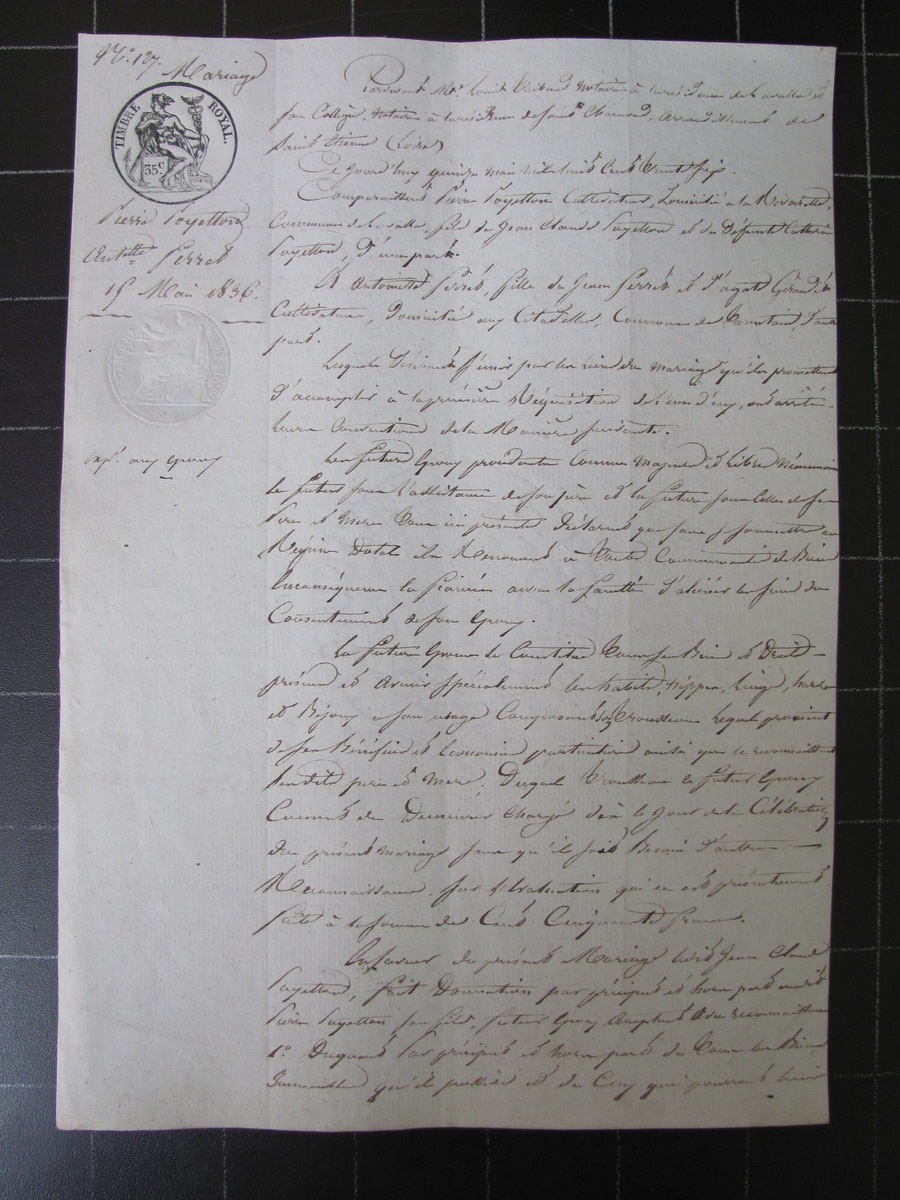 N.° 127.
Mariage
TIMBRE ROYAL.
35 c.
Pierre Fayetton
Ant.tte Perret
15 Mai 1836.
exp.n aux époux
Pardevant M.e Louis Thibaud Notaire à la résidence de Lavalla et
son Collègue, Notaire à la résidence de Saint Chamond, arrondissement de
Saint Etienne (Loire)
Ce jourd'huy quinze mai mil huit Cent trente six.
Comparaissent Pierre Fayetton Cultivateur, Domicilié à la Rivoirette,
Commune de Lavalla, fils de Jean Claude Fayetton et de Défunte Catherine
Fayetton, d'une part.
Et Antoinette Perret, fille de Jean Perret et d'agathe
Cultivateurs, Domiciliés aux Citadelle, Commune de Tarentaise, d'autre
part.
Lesquels Désirant s'unir par les liens du mariage qu'ils promettent
d'accomplir à la première Réquisition de l'un d'eux, ont arrêté
leurs Conventions de la Manière suivante.
Les futurs Epoux procédants Comme Majeurs et libres Néanmoins
le futur sous l'assistance de son père et la future sous celle de ses
Père et Mère tous ici présents Déclarent que sans se soumettre au
Régime Dotal ils Renoncent à toutes Communauté de Biens
en conséquence la première aura la faculté d'aliéner les siens du
Consentement de son Epoux.
La future Epouse se Constitue tous ses Biens et Droits
présens et Avenir spécialement les habits, nippes, linges, hardes
et Bijoux à son usage Composant son trousseau lequel provient
de ses Bénéfices et économies particulières ainsi que le reconnaissent
ses dits père et mère, Duquel trousseau le futur Epoux
Convient de Demeurer Chargé dès le jour de la Célébration
du présent mariage sans qu'il soit Besoin d'autre
Reconnaissance, sur l'Evaluation qui en est présentement
faite à la somme de Cent Cinquante francs.
En faveur du présent Mariage ledit Jean Claude
Fayetton, fait Donation par préciput et hors part audit
Pierre Fayetton son fils, futur Epoux acceptant avec reconnaissance
1.° Du quart Par préciput et hors part de tous les Biens
Immeubles qu'il possède et de Ceux qui pourront lui